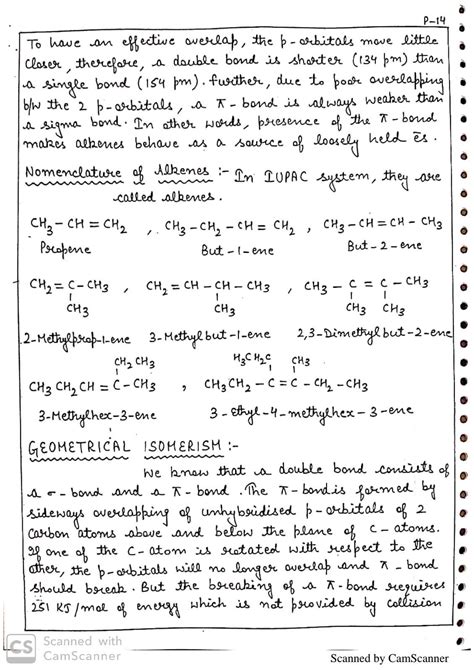 P-14
To have an effective overlap, the p-orbitals move little
closer, therefore, a double bond is shorter (134 pm) than
a single bond (154 pm). Further, due to poor overlapping
b/w the 2 p-orbitals, a π-bond is always weaker than
a sigma bond. In other words, presence of the π-bond
makes alkenes behave as a source of loosely held ēs.
Nomenclature of Alkenes :- In IUPAC system, they are
called alkenes.
CH₃-CH=CH₂ , CH₃-CH₂-CH=CH₂ , CH₃-CH=CH-CH₃
Propene But-1-ene But-2-ene
CH₂=C-CH₃ , CH₂=CH-CH-CH₃ , CH₃-C=C-CH₃
CH₃ CH₃ CH₃ CH₃
2-Methylprop-1-ene 3-Methylbut-1-ene 2,3-Dimethylbut-2-ene
CH₂CH₃ H₃CH₂C CH₃
CH₃CH₂CH=C-CH₃ , CH₃CH₂-C=C-CH₂-CH₃
3-Methylhex-3-ene 3-Ethyl-4-methylhex-3-ene
GEOMETRICAL ISOMERISM :-
We know that a double bond consists of
a σ-bond and a π-bond. The π-bond is formed by
sideways overlapping of unhybridised p-orbitals of 2
Carbon atoms above and below the plane of C-atoms.
If one of the C-atom is rotated with respect to the
other, the p-orbitals will no longer overlap and π-bond
should break. But the breaking of a π-bond requires
251 KJ/mol of energy which is not provided by collision
CS Scanned with
CamScanner
Scanned by CamScanner